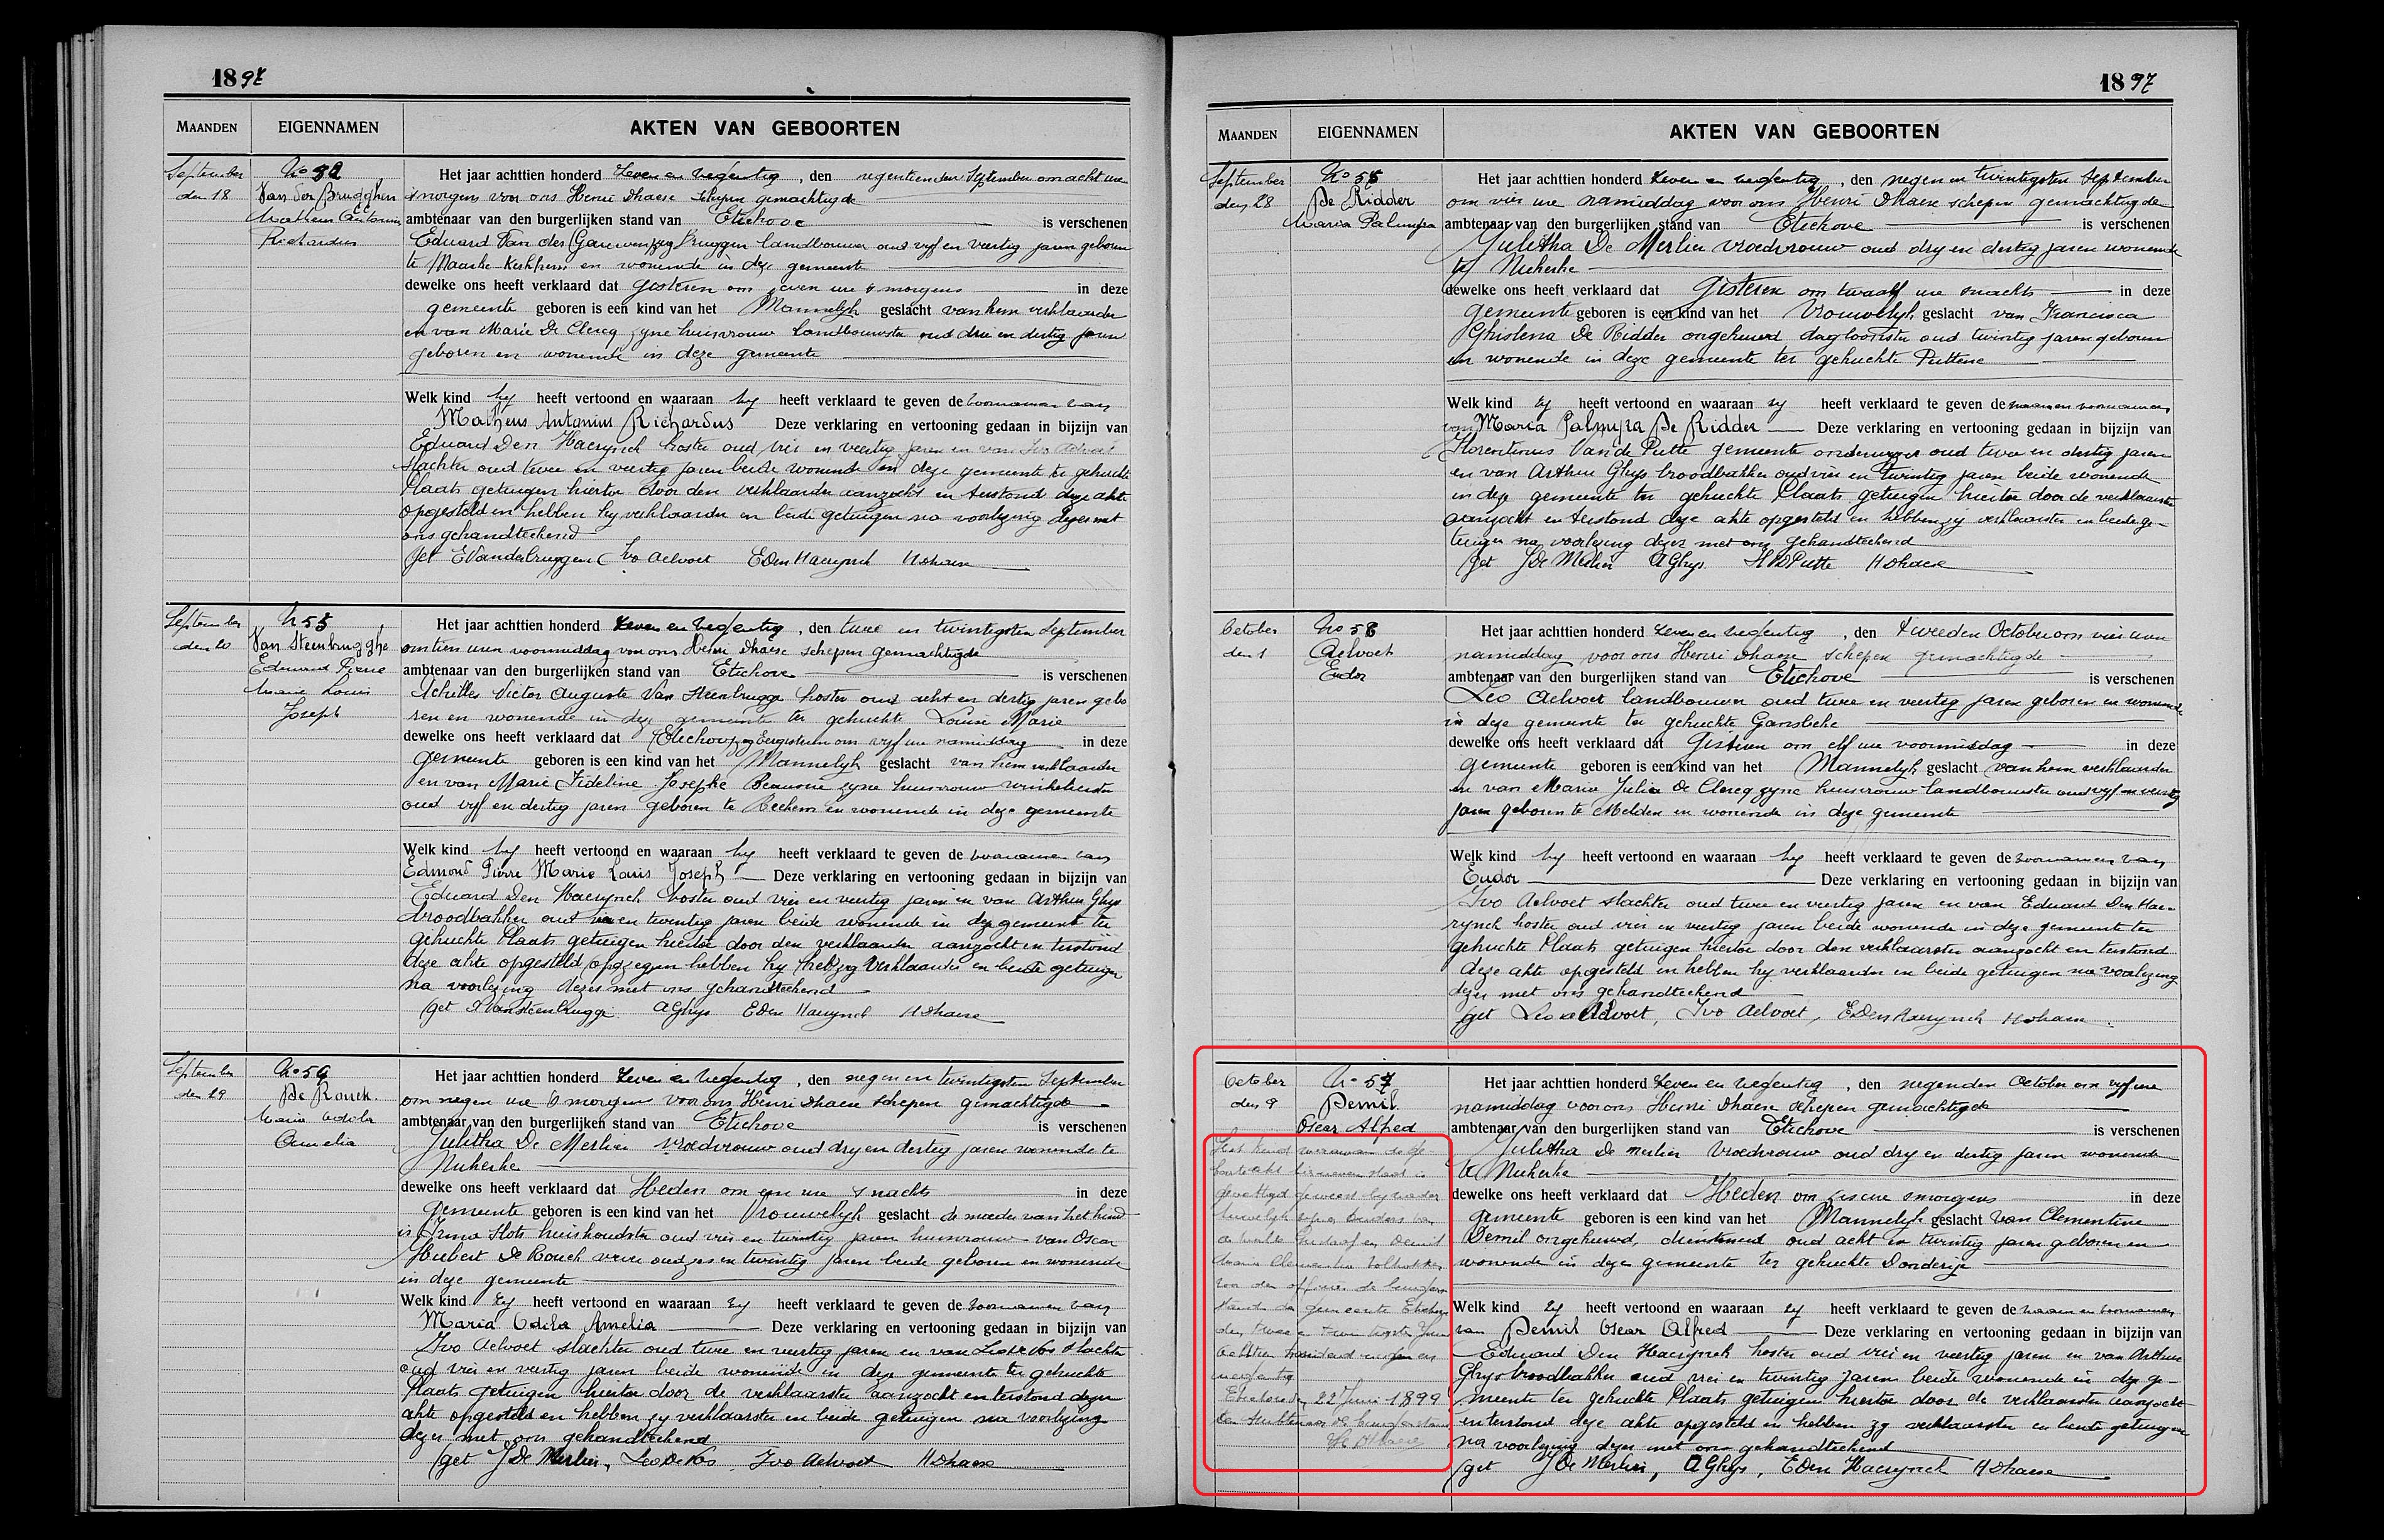 1897
MAANDEN
EIGENNAMEN
AKTEN VAN GEBOORTEN
September
den 18
No 52
Van der Brugghen
Matheus Antonius
Richardus
Het jaar achttien honderd zeven en negentig, den negentienden September om acht ure
s morgens voor ons Henri Dhaese schepen gemachtigde
ambtenaar van den burgerlijken stand van Etichove is verschenen
Eduard Van der Bruggen landbouwer oud vyf en veertig jaren geboren
te Maarke-Kerkhem en wonende in deze gemeente
dewelke ons heeft verklaard dat gisteren om zeven ure s morgens in deze
gemeente geboren is een kind van het Mannelyk geslacht van hem verklaarder
en van Marie De Clercq zyne huisvrouw landbouwster oud drie en dertig jaren
geboren en wonende in deze gemeente
Welk kind hy heeft vertoond en waaraan hy heeft verklaard te geven de voornamen van
Matheus Antonius Richardus Deze verklaring en vertooning gedaan in bijzijn van
Eduard Den Haerynck koster oud vier en veertig jaren en van Ivo Aelvoet
slachter oud twee en veertig jaren beide wonende in deze gemeente te gehuchte
Plaats getuigen hiertoe door den verklaarder aanzocht en terstond deze akte
opgesteld en hebben hy verklaarder en beide getuigen na voorlezing dezes met
ons gehandteekend
get E Vanderbruggen Ivo Aelvoet E Den Haerynck H Dhaese
September
den 20
N 53
Van Steenbrugghe
Edmond Pierre
Marie Louis
Joseph
Het jaar achttien honderd zeven en negentig, den twee en twintigsten September
om tien uren voormiddag voor ons Henri Dhaese schepen gemachtigde
ambtenaar van den burgerlijken stand van Etichove is verschenen
Achilles Victor Auguste Van Steenbrugge koster oud acht en dertig jaren gebo
ren en wonende in deze gemeente ter gehuchte Louise Marie
dewelke ons heeft verklaard dat Eergisteren om vyf ure namiddag in deze
gemeente geboren is een kind van het Mannelyk geslacht van hem verklaarder
en van Marie Fideline Josephe zyne huisvrouw winkelierster
oud vyf en dertig jaren geboren te Bechem en wonende in deze gemeente
Welk kind hy heeft vertoond en waaraan hy heeft verklaard te geven de voornamen van
Edmond Pierre Marie Louis Joseph Deze verklaring en vertooning gedaan in bijzijn van
Eduard Den Haerynck koster oud vier en veertig jaren en van Arthur Ghys
broodbakker oud vier en twintig jaren beide wonende in deze gemeente te
gehuchte Plaats getuigen hiertoe door den verklaarder aanzocht en terstond
deze akte opgesteld hebben hy verklaarder en beide getuigen
na voorlezing dezes met ons gehandteekend
get A Vansteenbrugge A Ghys E Den Haerynck H Dhaese
September
den 29
No 54
De Rouck
Maria Odila
Amelia
Het jaar achttien honderd zeven en negentig, den negen en twintigsten September
om negen ure s morgens voor ons Henri Dhaese schepen gemachtigde
ambtenaar van den burgerlijken stand van Etichove is verschenen
Julitha De Merlier vroedvrouw oud dry en dertig jaren wonende te
Nukerke
dewelke ons heeft verklaard dat Heden om een ure s nachts in deze
gemeente geboren is een kind van het Vrouwelyk geslacht de moeder van het kind
is Irma Slots huishoudster oud vier en twintig jaren huisvrouw van Oscar
Hubert De Rouck oud zes en twintig jaren beide geboren en wonende
in deze gemeente
Welk kind zy heeft vertoond en waaraan zy heeft verklaard te geven de voornamen van
Maria Odila Amelia Deze verklaring en vertooning gedaan in bijzijn van
Ivo Aelvoet slachter oud twee en veertig jaren en van Leo De Vos slachter
oud vier en veertig jaren beide wonende in deze gemeente ter gehuchte
Plaats getuigen hiertoe door de verklaarster aanzocht en terstond deze
akte opgesteld en hebben zy verklaarster en beide getuigen na voorlezing
dezes met ons gehandteekend
get J De Merlier, Leo De Vos Ivo Aelvoet H Dhaese
1897
MAANDEN
EIGENNAMEN
AKTEN VAN GEBOORTEN
September
den 28
No 55
De Ridder
Maria Palmyra
Het jaar achttien honderd zeven en negentig, den negen en twintigsten September
om vier ure namiddag voor ons Henri Dhaese schepen gemachtigde
ambtenaar van den burgerlijken stand van Etichove is verschenen
Julitha De Merlier vroedvrouw oud dry en dertig jaren wonende
te Nukerke
dewelke ons heeft verklaard dat Gisteren om twaalf ure snachts in deze
gemeente geboren is een kind van het Vrouwelyk geslacht van Francisca
Ghislena De Ridder ongehuwd, dagloonster oud twintig jaren geboren
en wonende in deze gemeente ter gehuchte Puttene
Welk kind zy heeft vertoond en waaraan zy heeft verklaard te geven de naam en voornamen
van Maria Palmyra De Ridder Deze verklaring en vertooning gedaan in bijzijn van
Florentinus Van de Putte gemeente onderwyzer oud twee en dertig jaren
en van Arthur Ghys broodbakker oud vier en twintig jaren beide wonende
in deze gemeente ter gehuchte Plaats getuigen hiertoe door de verklaarster
aanzocht en terstond deze akte opgesteld en hebben zy verklaarster en beide ge-
tuigen na voorlezing dezes met ons gehandteekend
get J De Merlier A Ghys H VD Putte H Dhaese
October
den 1
No 56
Aelvoet
Eudor
Het jaar achttien honderd zeven en negentig, den tweeden October om vier uren
namiddag voor ons Henri Dhaese schepen gemachtigde
ambtenaar van den burgerlijken stand van Etichove is verschenen
Leo Aelvoet landbouwer oud twee en veertig jaren geboren en wonende
in deze gemeente ter gehuchte Gansbeke
dewelke ons heeft verklaard dat Gisteren om elf ure voormiddag in deze
gemeente geboren is een kind van het Mannelyk geslacht van hem verklaarder
en van Maria Julia De Clercq zyne huisvrouw landbouwster oud vyf en veertig
jaren geboren te Melden en wonende in deze gemeente
Welk kind hy heeft vertoond en waaraan hy heeft verklaard te geven de voornamen van
Eudor Deze verklaring en vertooning gedaan in bijzijn van
Ivo Aelvoet slachter oud twee en veertig jaren en van Eduard Den Hae-
rynck koster oud vier en veertig jaren beide wonende in deze gemeente ter
gehuchte Plaats getuigen hiertoe door den verklaarster aanzocht en terstond
deze akte opgesteld en hebben hy verklaarder en beide getuigen na voorlezing
dezes met ons gehandteekend
get Leo Aelvoet, Ivo Aelvoet, E Den Haerynck H Dhaese
October
den 9
No 57
Demil
Oscar Alfred
Het kind waarvan de ge-
boorteakt hierneven staat is
gewettigd geweest by nader
huwelyk zyner ouders
Gustaaf en Demil
Maria Clementina voltrokken
voor den officier de burgern
stand der gemeente Etichove
den twee en twintigsten Juni
achttien honderd negen en
negentig
Etichove den 22 Juni 1899
Den Ambtenaar de burgerstand
H Dhaese
Het jaar achttien honderd zeven en negentig, den negenden October om vyf ure
namiddag voor ons Henri Dhaese schepen gemachtigde
ambtenaar van den burgerlijken stand van Etichove is verschenen
Julitha De Merlier vroedvrouw oud dry en dertig jaren wonende
te Nukerke
dewelke ons heeft verklaard dat Heden om zes ure smorgens in deze
gemeente geboren is een kind van het Mannelyk geslacht van Clementine
Demil ongehuwd, dienstmeid oud acht en twintig jaren geboren en
wonende in deze gemeente ter gehuchte Donderij
Welk kind zy heeft vertoond en waaraan zy heeft verklaard te geven de naam en voornamen
van Demil Oscar Alfred Deze verklaring en vertooning gedaan in bijzijn van
Eduard Den Haerynck koster oud vier en veertig jaren en van Arthur
Ghys broodbakker oud vier en twintig jaren beide wonende in deze ge-
meente ter gehuchte Plaats getuigen hiertoe door de verklaarster aanzocht
en terstond deze akte opgesteld en hebben zy verklaarster en beide getuigen
na voorlezing dezes met ons gehandteekend
get J De Merlier, A Ghys, E Den Haerynck H Dhaese